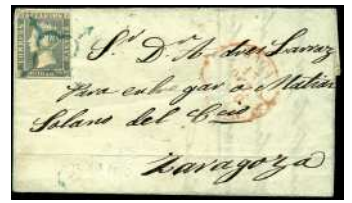 Sr. Dn. Andres Larraz
Para entregar a Matias
Solano del Ceio
Zaragoza